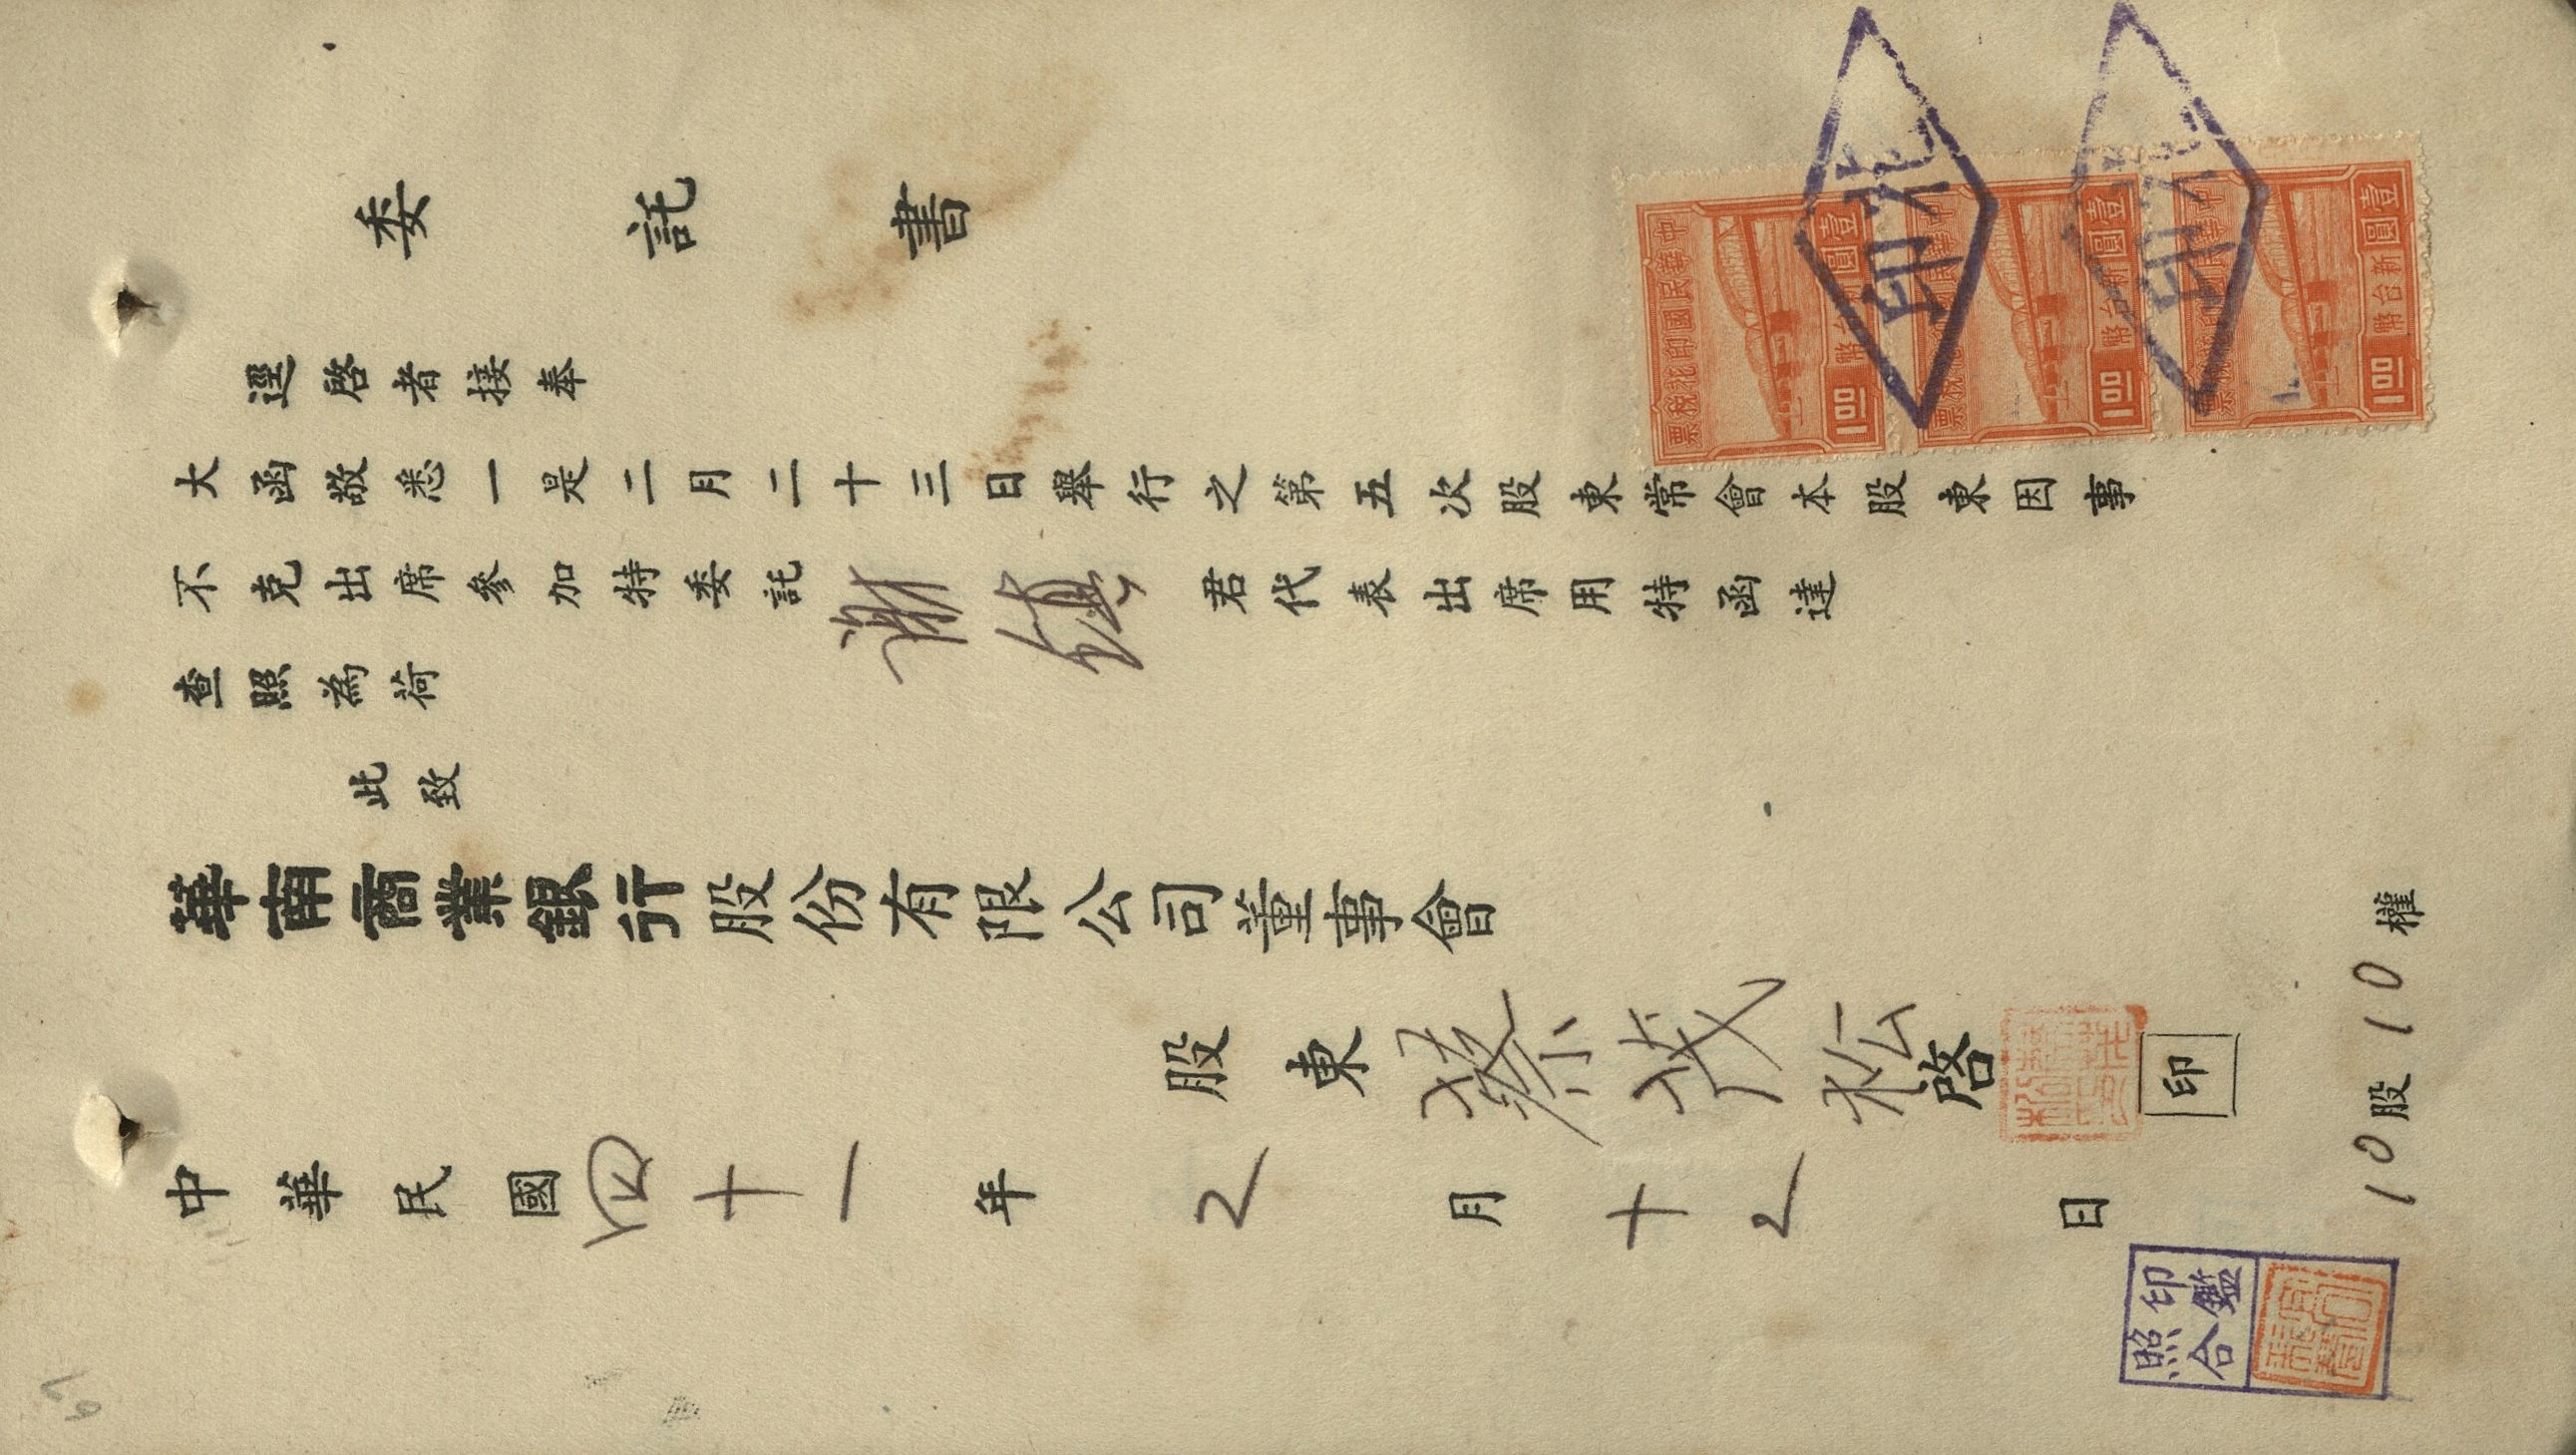 委託書
逕啓者接奉
大函敬悉一是二月二十三日舉行之第五次股東常會本股東因事
不克出席參加特委託謝鎮君代表出席用特函達
查照為荷
此致
華南商業銀行股份有限公司董事會
股東蔡茂松啓 印
中華民國四十一年2月十2日
10股10權
印鑑
照合
中華民國印花稅票
新台幣壹圓
1.00
中華民國印花稅票
新台幣壹圓
1.00
中華民國印花稅票
新台幣壹圓
1.00
北印
北印